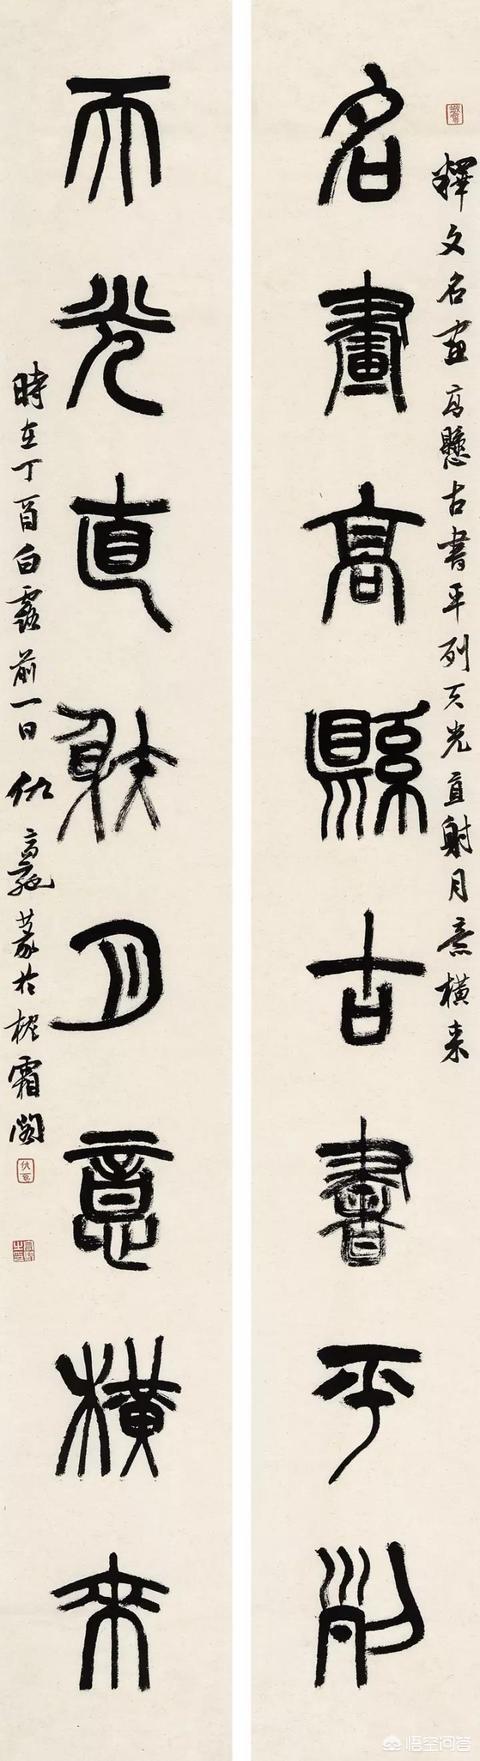 釋文名畫高懸古書平列天光直射月意橫來
名畫高縣古書平列
天光直射月意橫來
時在丁酉白露前一日仇高馳篆於霜閣
悟空问答